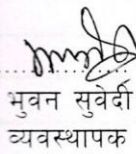 भुवन सुवेदी
व्यवस्थापक